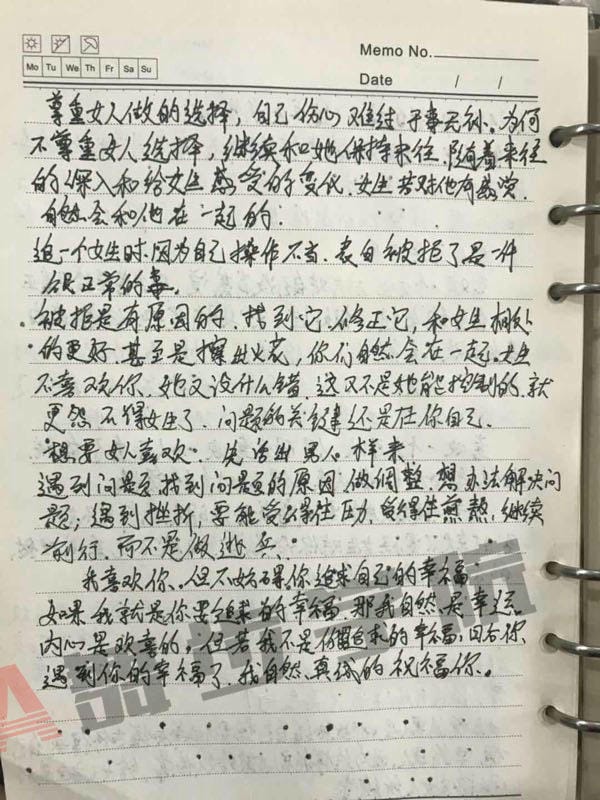 Memo No.
Mo Tu We Th Fr Sa Su
Date / /
尊重女人做的选择，自己伤心难过于事无补。为何
不尊重女人选择，继续和她保持来往。随着来往
的深入和给女生感受的变化，女生若对他有感觉，
自然会和他在一起的；
追一个女生时，因为自己操作不当，表白被拒了是一件
很正常的事。
被拒是有原因的，找到它，修正它，和女生相处
的更好，甚至是擦出火花，你们自然会在一起。女生
不喜欢你，她又没什么错，这又不是她能控制的，就
更怨不得女生了，问题的关键还是在你自己。
想要女人喜欢，先活出男人样来，
遇到问题，找到问题的原因，做调整，想办法解决问
题；遇到挫折，要能受得住压力，受得住煎熬，继续
前行，而不是做逃兵。
我喜欢你，但不妨碍你追求自己的幸福，
如果我就是你要追求的幸福，那我自然是幸运，
内心是欢喜的，但若我不是你追求的幸福，因为你
遇到你的幸福了，我自然真诚的祝福你。